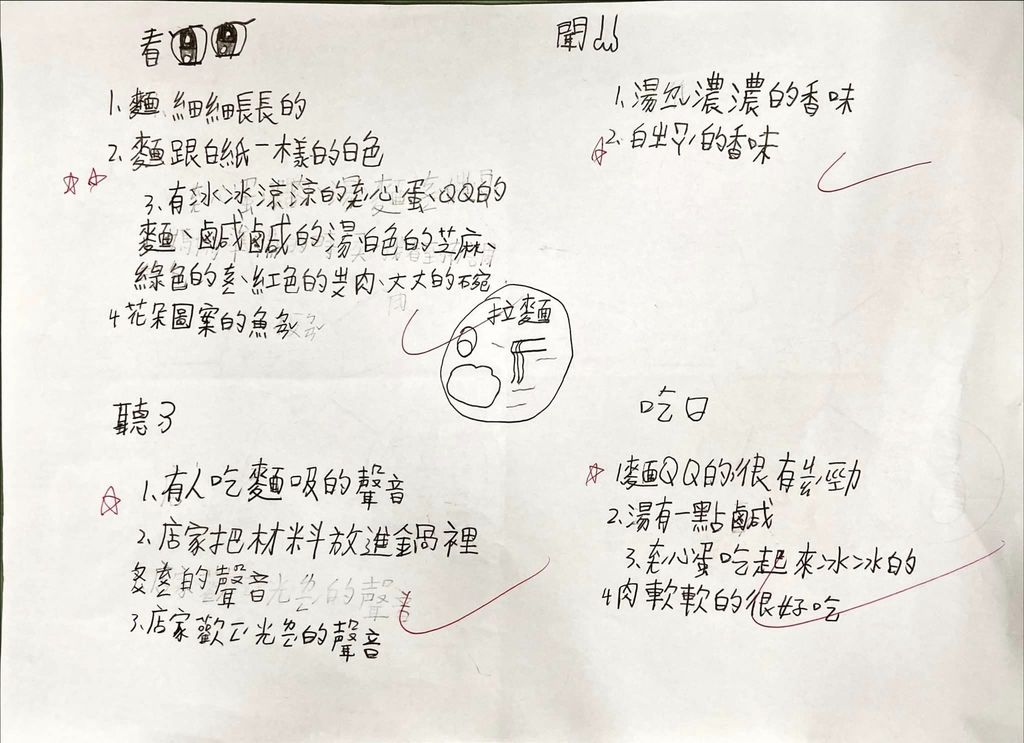 看
1.麵細細長長的
2.麵跟白紙一樣的白色
3.有冰冰涼涼的心蛋、QQ的
麵、鹹鹹的湯白色的芝麻、
綠色的、紅色的肉、大大的碗
4花朵圖案的魚
聞
1.湯濃濃的香味
2.的香味
拉麵
聽
1.有人吃麵吸的聲音
2.店家把材料放進鍋裡
的聲音
3.店家歡光的聲音
吃
1麵QQ的很有勁
2.湯有一點鹹
3.心蛋吃起來冰冰的
4肉軟軟的很好吃